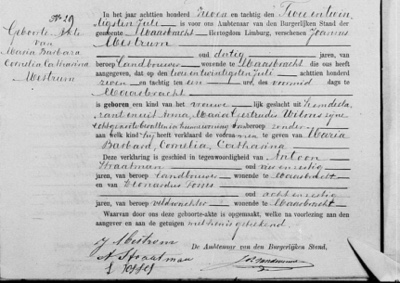 No 29
Geboorte Akte
van
Maria Barbara
Cornelia Catharina
Mestrum
In het jaar achttien honderd zeven en tachtig den Twee en twin
tigsten Juli is voor ons Ambtenaar van den Burgerlijken Stand der
gemeente Maasbracht Hertogdom Limburg, verschenen Joannes
Mestrum oud dertig
jaren, van beroep Landbouwer wonende te Maasbracht die ons heeft
aangegeven, dat op den een en twintigsten Juli achttien honderd
zeven en tachtig ten ure, des voormid te
Maasbracht
is geboren een kind van het vrouwe lijk geslacht uit hem decla
rant en uit Anna Maria Gertrudis zyne
echtgenoote van beroep zonder
aan welk kind hij heeft verklaard de voornamen te geven van Maria
Barbara, Cornelia, Catharina
Deze verklaring is geschied in tegenwoordigheid van Antoon
Straatman oud
jaren, van beroep landbouwer wonende te Maasbracht
en van Leonardus oud acht en zestig
jaren, van beroep veldwachter wonende te Maasbracht
Waarvan door ons deze geboorte-akte is opgemaakt, welke na voorlezing aan den
aangever en aan de getuigen
De Ambtenaar van den Burgerlijken Stand,
J Mestrom
A Straatman